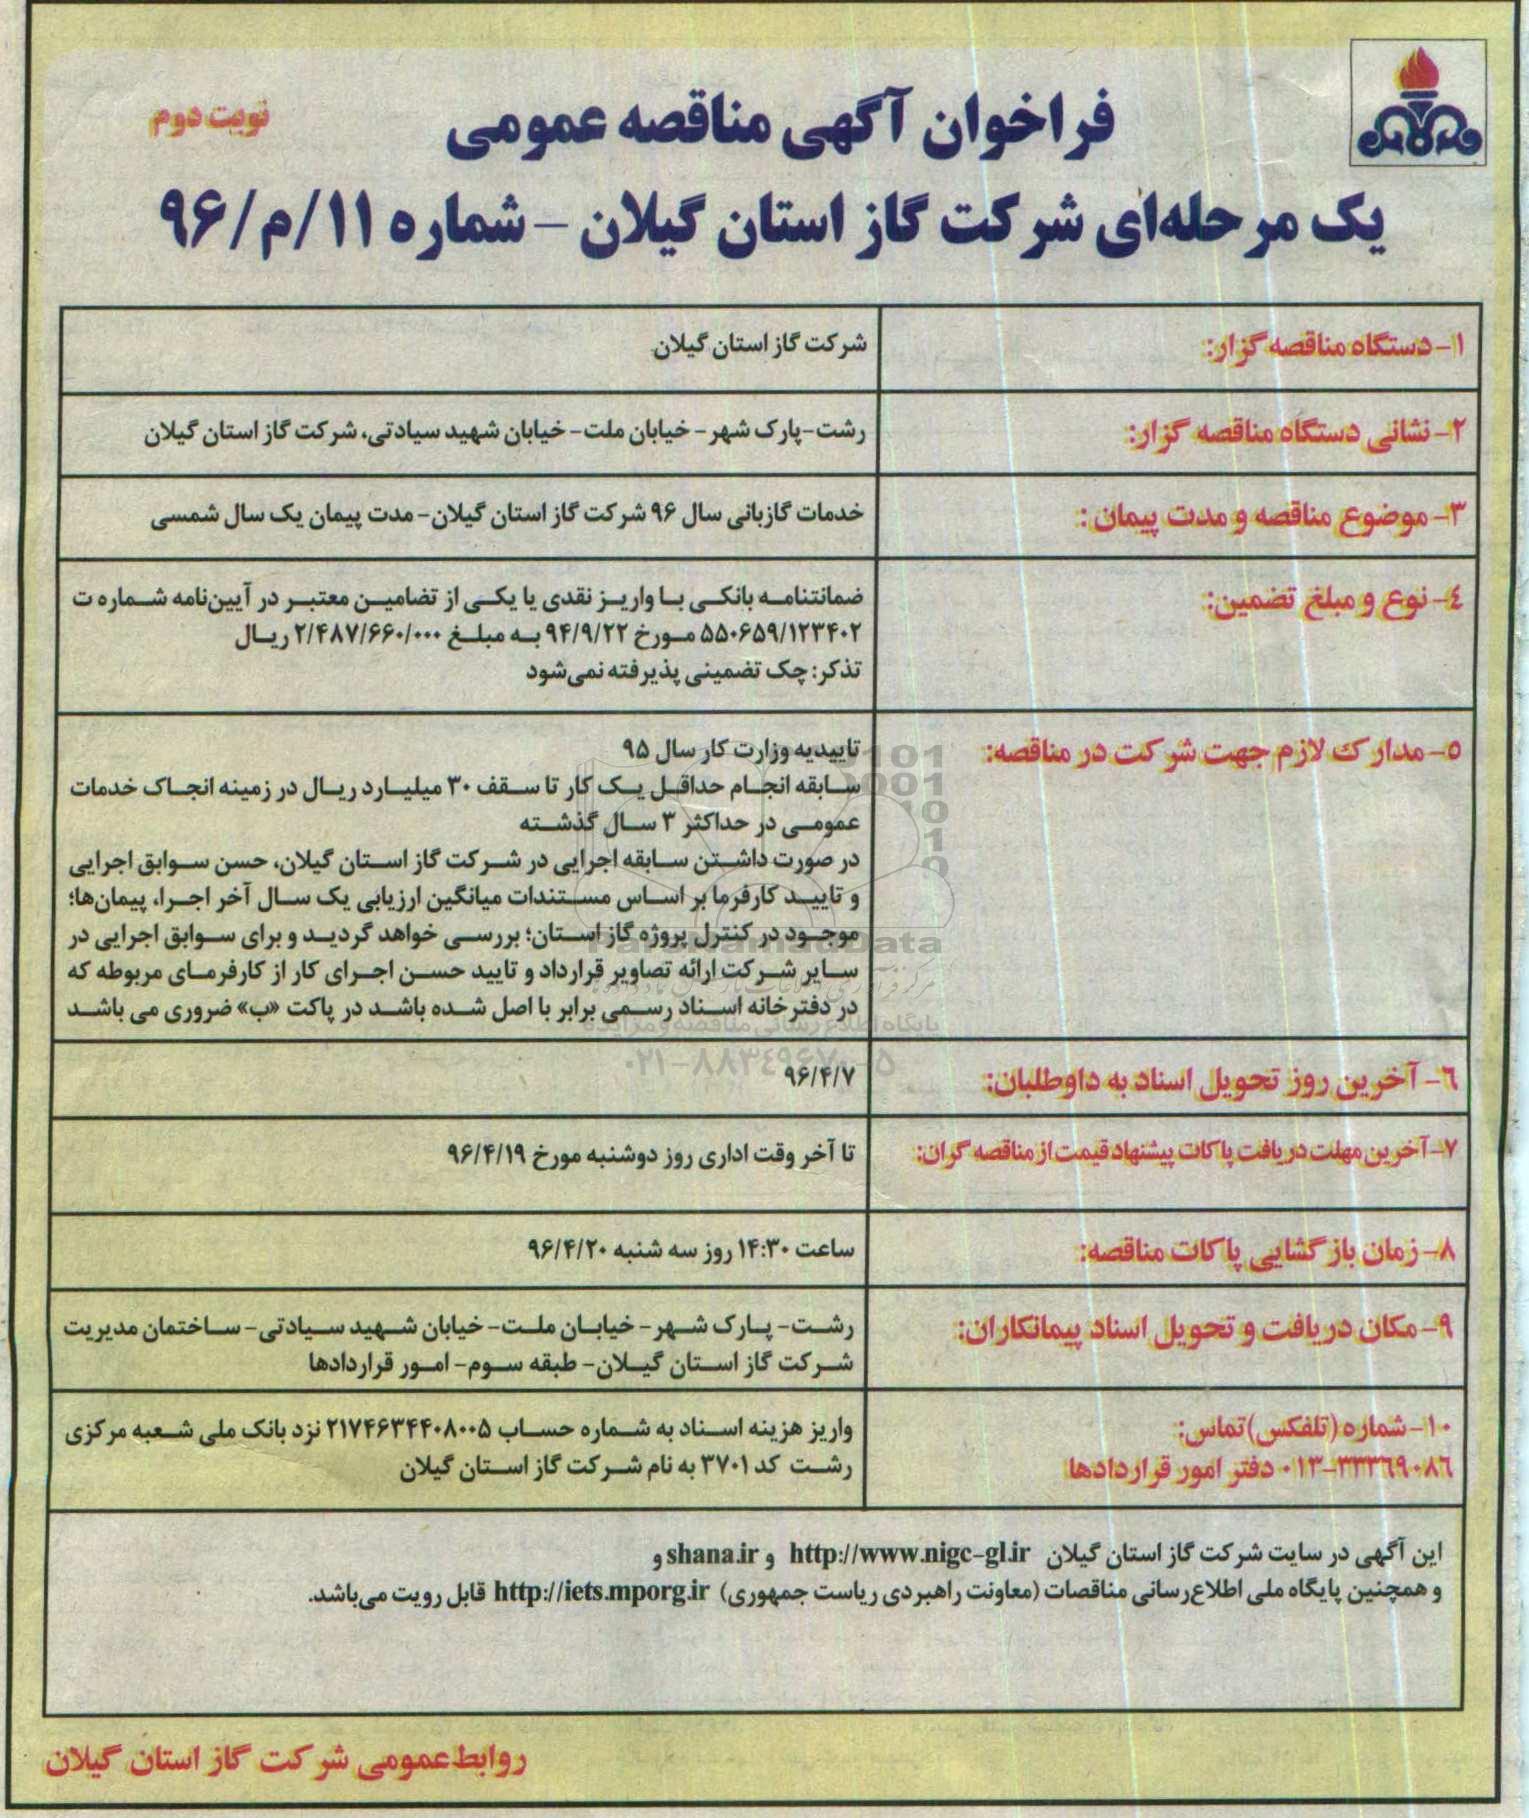 نوبت دوم
فراخوان آگهی مناقصه عمومی
یک مرحله‌ای شرکت گاز استان گیلان – شماره ۱۱/م/۹۶
۱- دستگاه مناقصه گزار:
شرکت گاز استان گیلان
۲- نشانی دستگاه مناقصه گزار:
رشت-پارک شهر- خیابان ملت- خیابان شهید سیادتی، شرکت گاز استان گیلان
۳- موضوع مناقصه و مدت پیمان:
خدمات گازبانی سال ۹۶ شرکت گاز استان گیلان- مدت پیمان یک سال شمسی
۴- نوع و مبلغ تضمین:
ضمانتنامه بانکی یا واریز نقدی یا یکی از تضامین معتبر در آیین‌نامه شماره ت
۵۵۰۶۵۹/۱۲۳۴۰۲ مورخ ۹۴/۹/۲۲ به مبلغ ۲/۴۸۷/۶۶۰/۰۰۰ ریال
تذکر: چک تضمینی پذیرفته نمی‌شود
۵- مدارک لازم جهت شرکت در مناقصه:
تاییدیه وزارت کار سال ۹۵
سابقه انجام حداقل یک کار تا سقف ۳۰ میلیارد ریال در زمینه انجاک خدمات
عمومی در حداکثر ۳ سال گذشته
در صورت داشتن سابقه اجرایی در شرکت گاز استان گیلان، حسن سوابق اجرایی
و تایید کارفرما بر اساس مستندات میانگین ارزیابی یک سال آخر اجرا، پیمان‌ها؛
موجود در کنترل پروژه گاز استان؛ بررسی خواهد گردید و برای سوابق اجرایی در
سایر شرکت ارائه تصاویر قرارداد و تایید حسن اجرای کار از کارفرمای مربوطه که
در دفترخانه اسناد رسمی برابر با اصل شده باشد در پاکت «ب» ضروری می باشد
۶- آخرین روز تحویل اسناد به داوطلبان:
۹۶/۴/۷
۷- آخرین مهلت دریافت پاکات پیشنهاد قیمت از مناقصه گران:
تا آخر وقت اداری روز دوشنبه مورخ ۹۶/۴/۱۹
۸- زمان بازگشایی پاکات مناقصه:
ساعت ۱۴:۳۰ روز سه شنبه ۹۶/۴/۲۰
۹- مکان دریافت و تحویل اسناد پیمانکاران:
رشت- پارک شهر- خیابان ملت- خیابان شهید سیادتی- ساختمان مدیریت
شرکت گاز استان گیلان- طبقه سوم- امور قراردادها
۱۰- شماره (تلفکس) تماس:
۰۱۳-۳۳۳۶۹۰۸۶ دفتر امور قراردادها
واریز هزینه اسناد به شماره حساب ۲۱۷۴۶۳۴۴۰۸۰۰۵ نزد بانک ملی شعبه مرکزی
رشت کد ۳۷۰۱ به نام شرکت گاز استان گیلان
این آگهی در سایت شرکت گاز استان گیلان http://www.nigc-gl.ir و shana.ir و
و همچنین پایگاه ملی اطلاع‌رسانی مناقصات (معاونت راهبردی ریاست جمهوری) http://iets.mporg.ir قابل رویت می‌باشد.
روابط عمومی شرکت گاز استان گیلان
پایگاه اطلاع رسانی مناقصه و مزایده
۰۲۱-۸۸۳۴۹۶۷۰-۵